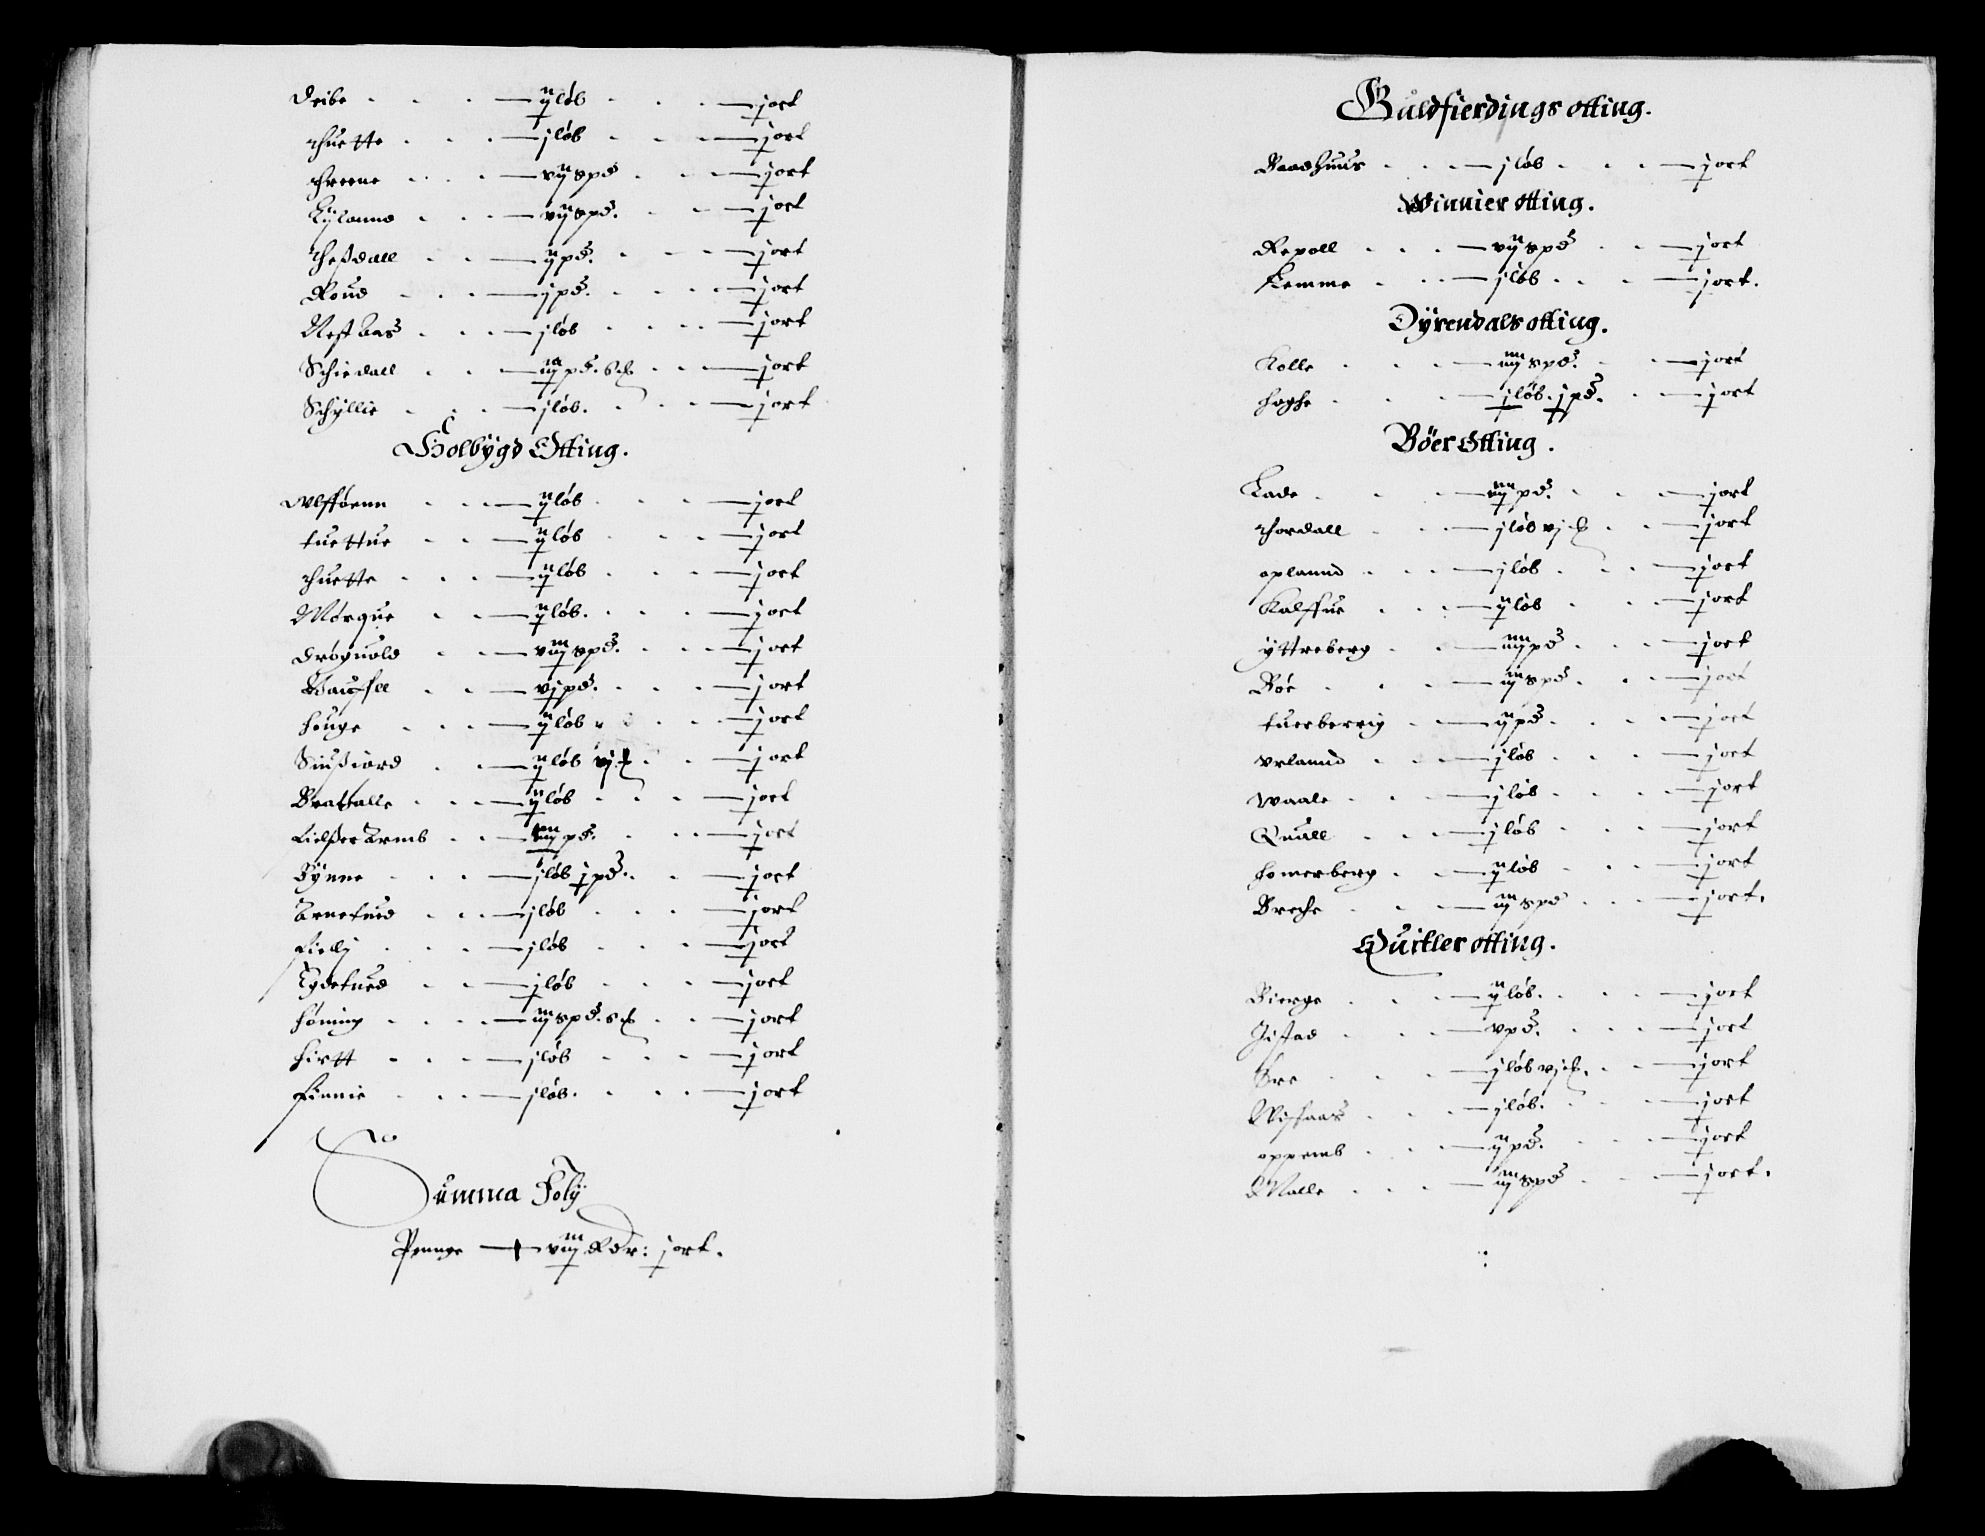 Deibe - - - ij løb - - - j ort
Thuette - - - j løb - - - j ort
Threene - - - vij spd - - j ort
Eylannd - - - vij spd. - - j ort
Theßdall - - - ij pd. - - - j ort
Roud - - - j pd. - - - j ort
Nestaas - - - j løb - - - j ort
Schiedall - - - iij pd. - - j ort
Schyllie - - - j løb. - - - j ort
Holbygd Otting.
Wlfføenn - - - ij løb - - - j ort
tuettue - - ij løb - - - j ort
Thuette - - - ij løb - - - j ort
Mørque - - ij løb. - - - j ort
Drøguold - - viij spd. - - - j ort
- - vj pd. - - - j ort
Houge - - - ij løb - - - j ort
Siußiord - - ij løb vj - - j ort
Brattalle - - - ij løb - - - j ort
- - iiij pd. - - - j ort
Bynne - - - j løb j pd. - - j ort
Arnetued - - - j løb - - - j ort
Fielly - - - j løb - - - j ort
Eydetued - - j løb - - - j ort
Høning - - - iij spd. - - j ort
Hirtt - - - j løb - - - j ort
Finnie - - - j løb. - - - j ort
Summa Foly
Pennge — viij Rdr: j ort.
Guldfierdings otting.
Baadhuus - - - j løb - - - j ort
Winnier otting.
Repoll - - - vij spd - - j ort
Lemme - - - j løb - - - j ort.
Dyrendals otting.
Kolle - - - iiij spd. - - j ort
Haghe - - - j løb. j pd. - - j ort
Bøer Otting.
Lade - - - iiij pd. - - - j ort
Thordall - - - j løb vj - - j ort
oplannd - - - j løb - - - j ort
Kalffue - - - ij løb - - - j ort
yttreberg - - iiij pd - - - j ort
Bøe - - - iij spd - - - j ort
tuerberrig - - ij pd - - - j ort
Vrlannd - - - j løb - - - j ort
Waale - - - j løb - - - j ort
Quall - - - j løb - - - j ort
Homerberg - - ij løb - - - j ort
Breche - - - iij spd - - - j ort.
Quitler otting.
Bierge - - - ij løb. - - - j ort
Jistad - - - v pd. - - - j ort
Øre - - - j løb vj - - j ort
- - - j løb. - - - j ort
oppemb - - - ij pd. - - - j ort
Walle - - - iij spd - - - j ort.